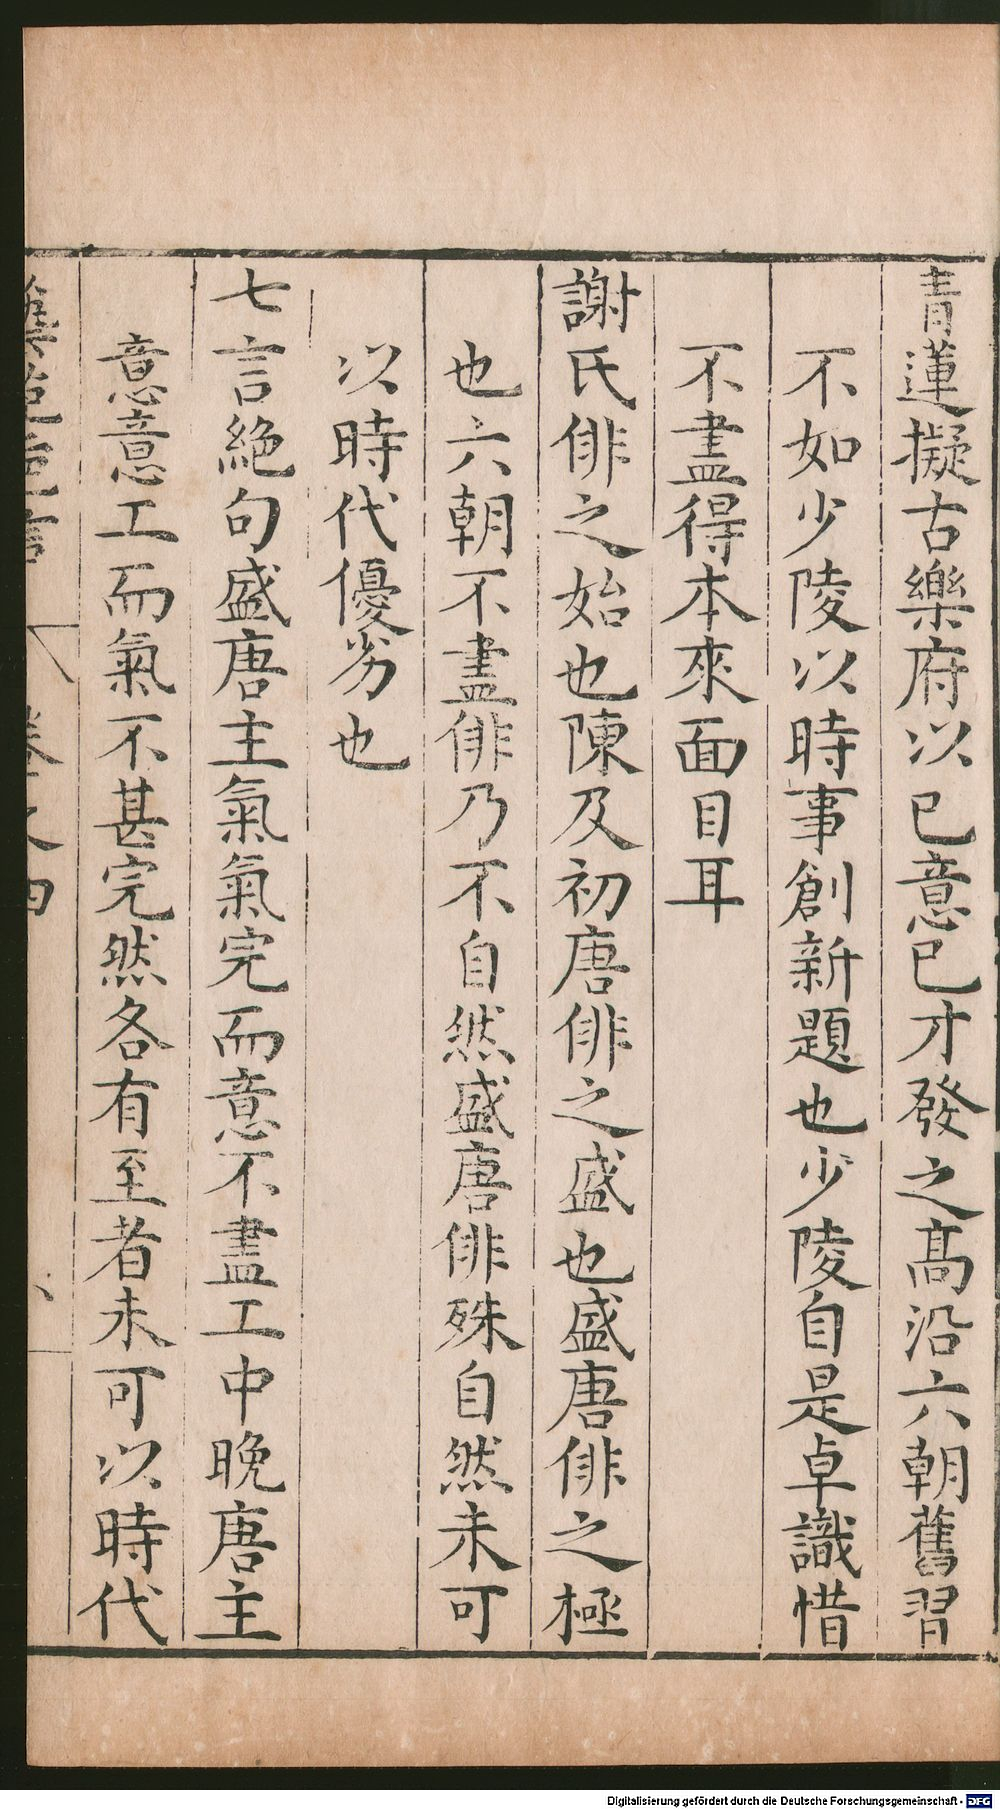 青蓮擬古樂府以已意已才發之高沿六朝舊習
不如少陵以時事創新題也少陵自是卓識惜
不盡得本來面目耳
謝氏俳之始也陳及初唐俳之盛也盛唐俳之極
也六朝不盡俳乃不自然盛唐俳殊自然未可
以時代優劣也
七言絕句盛唐主氣氣完而意不盡工中晚唐主
意意工而氣不甚完然各有至者未可以時代
藝苑巵言 卷之四 八
Digitalisierung gefördert durch die Deutsche Forschungsgemeinschaft - DFG